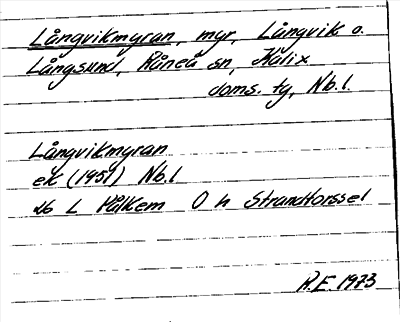 Långvikmyran, myr, Långvik o.
Långsund, Råneå sn, Kalix
doms. tg, Nb.l.
Långvikmyran
ek (1951) Nb.l
db L Hålkem O h Strandtorssel
R.E. 1973